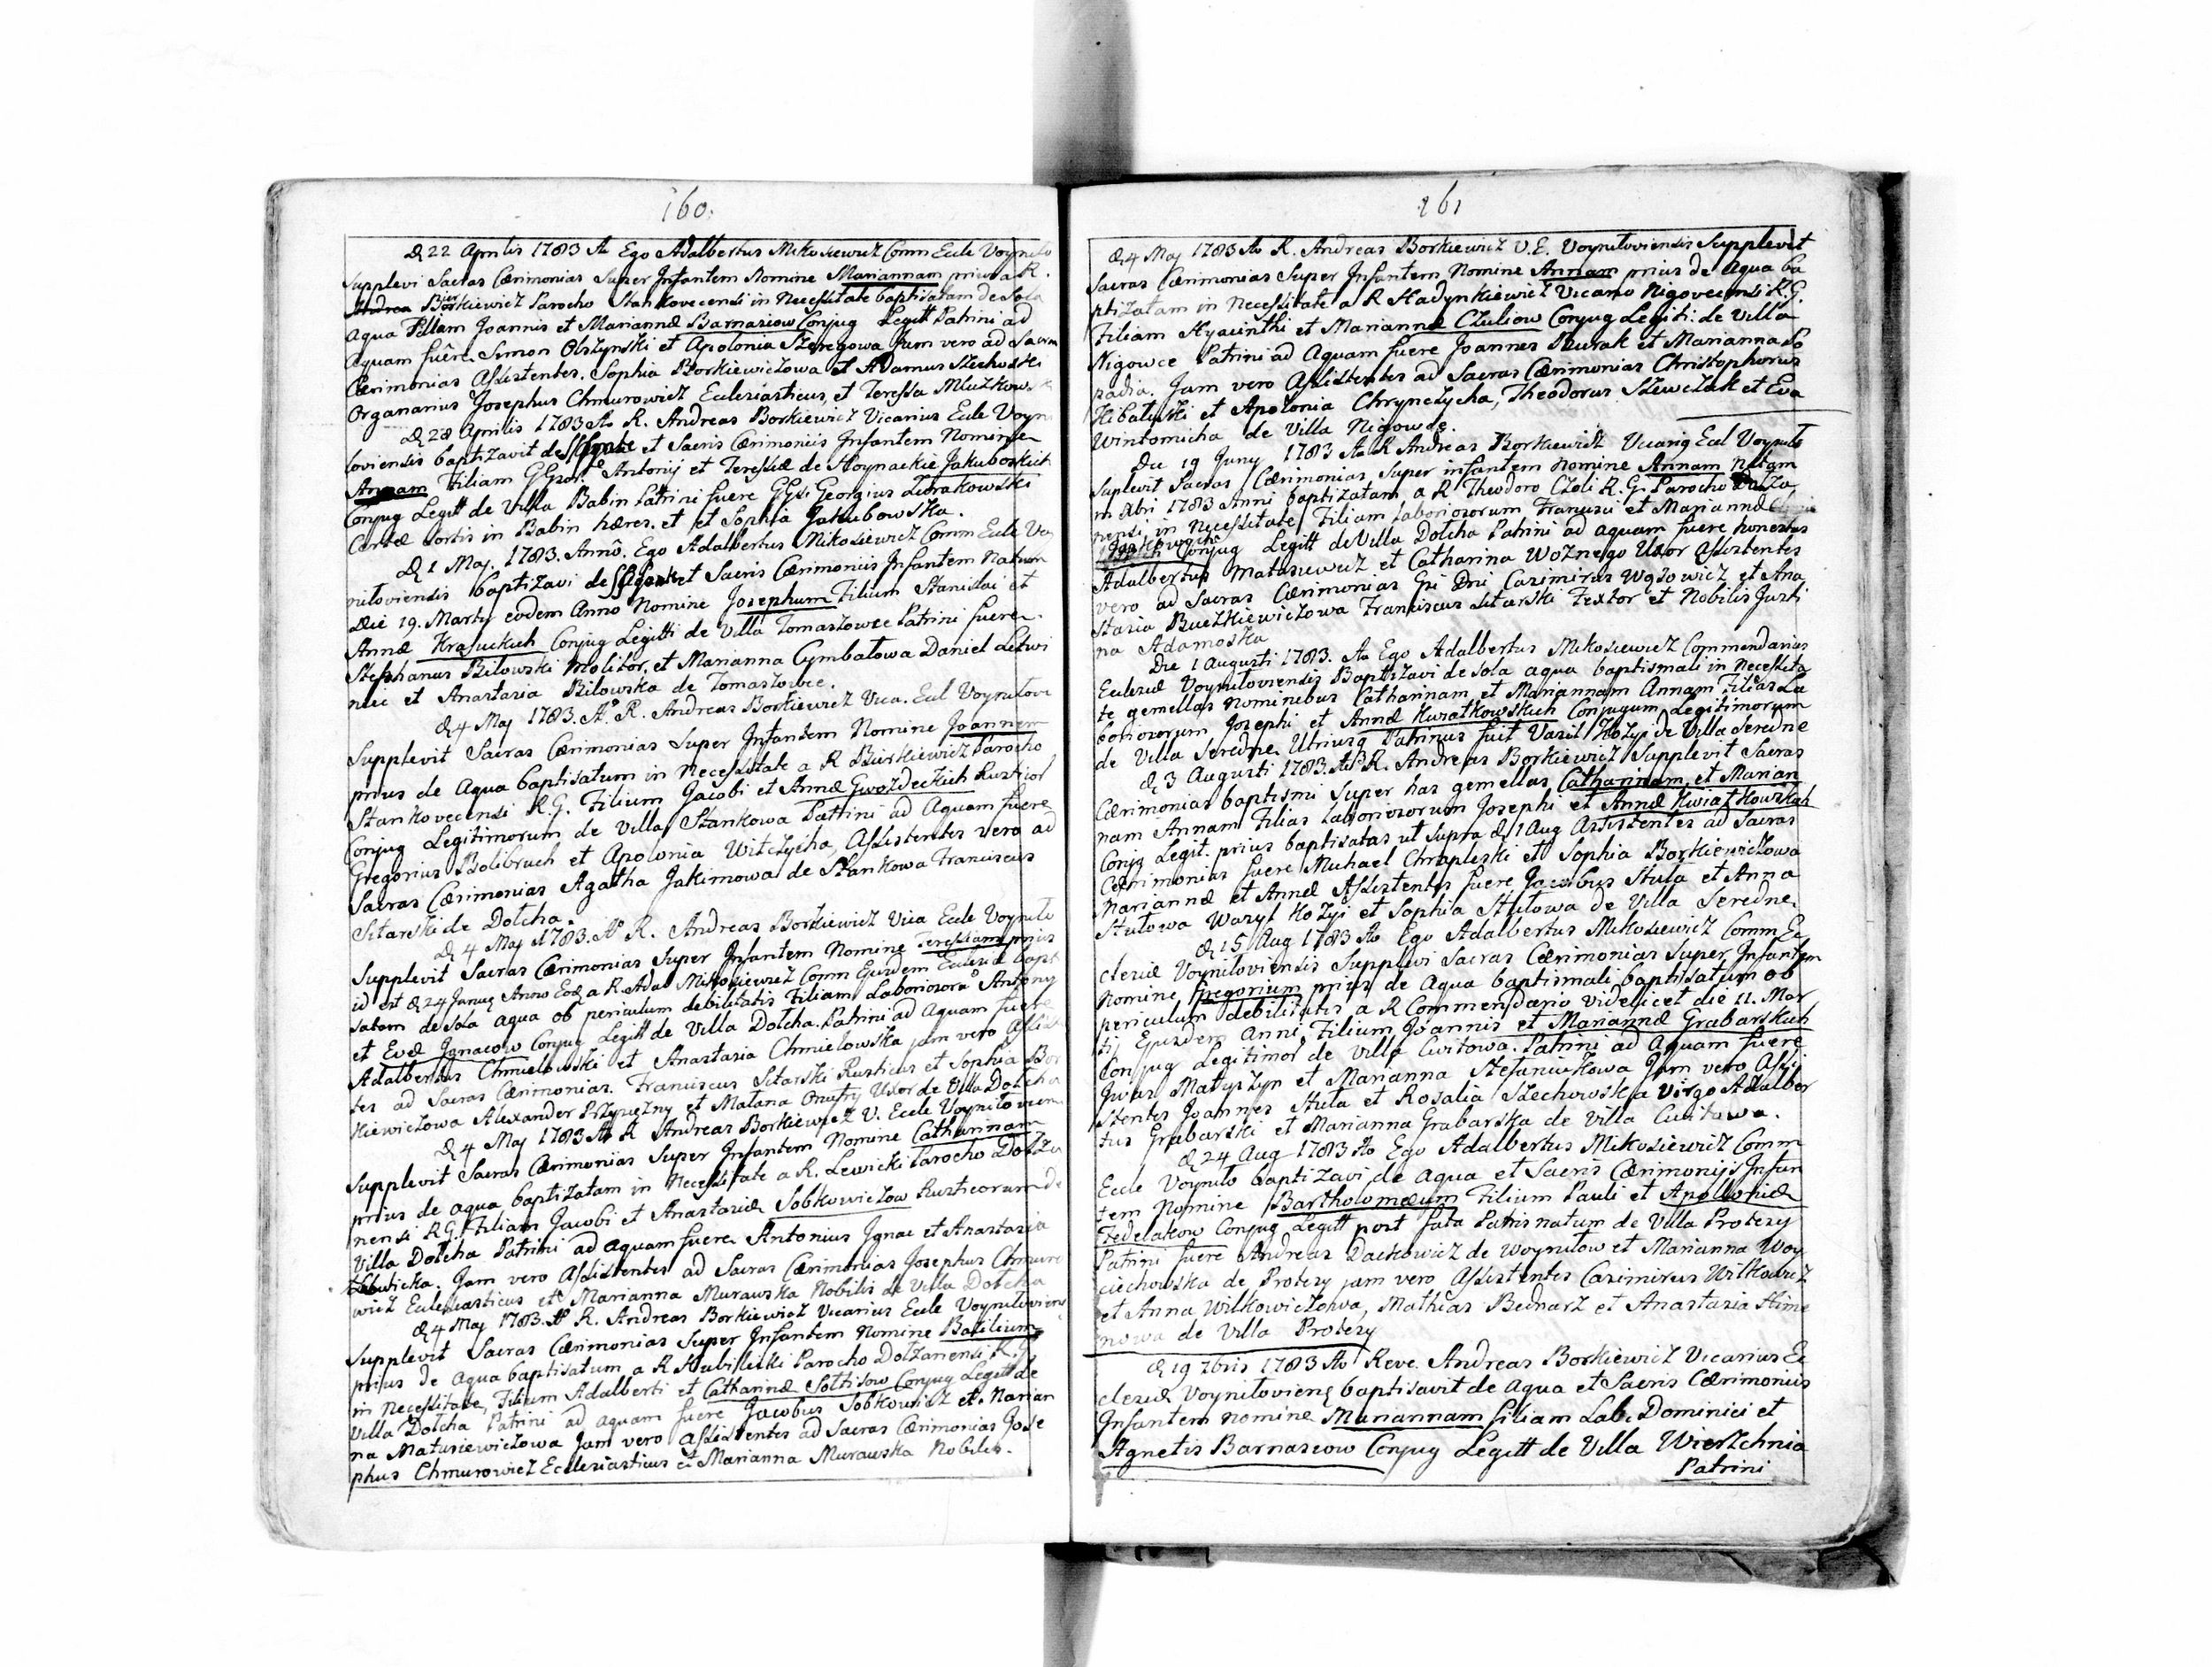 160.
D 22 Aprilis 1783 Ao Ego Adalbertus Mikosiewicz Comm Eccle Voynilo
Supplevi Sacras Cærimonias Super Infantem Nomine Mariannam prius a R.
Andrea Bierkiewicz Parocho Stankovecensi in Necessitate baptisatam de Sola
aqua Filiam Joannis et Mariannæ Barnasiow Conjug Legitt Patrini ad
Aquam fuêre Simon Olszynski et Apolonia Szeregowa Jam vero ad Sacra
Cærimonias Assistentes. Sophia Borkiewiczowa et Adamus Szechoski
Organarius Josephus Chmurowicz Eclesiasticus, et Teressa Mluzkow
D 28 Aprilis 1783 Ao R. Andreas Borkiewicz Vicarius Eccle Voyni
loviensis baptizavit de et Sacris Cærimoniis Infantem Nomine
Annam Filiam Antonij et Teressiæ de Stoynackie Jakuboskich
Conjug Legitt de Villa Babin Patrini fuere Georgius Zurakowski
Certæ Sortis in Babin hæres. et et Sophia Jakubowska.
D 1 Maj. 1783. Annô. Ego Adalbertus Mikosiewicz Comm Eccle Voy
niloviensis baptizavi de et Sacris Cærimoniis Infantem Natum
Die 19. Marty eodem Anno Nomine Josephum Filium Stanislai et
Annæ Krasuckich Conjug Legitti de Villa Tomaszowce Patrini fuere
Stephanus Bilowski Molitor, et Marianna Cymbalowa Daniel Letwi
nici et Anastasia Bilowska de Tomaszowce.
D 4 Maj 1783. Ao. R. Andreas Borkiewicz Vica. Ecl Voynilovi
Supplevit Sacras Cærimonias Super Infantem Nomine Joannem
prius de Aqua baptisatum in Necessitate a R Bierkiewicz Parocho
Stankovecensi R.G. Filium Jacobi et Annæ Gwozdeckich Rusticor
Conjug Legitimorum de Villa Stankowa Patrini ad Aquam fuere
Gregorius Bolibruch et Apolonia Witczycha, Assistentes vero ad
Sacras Cærimonias Agatha Jakimowa de Stankowa Franciscus
Sitarski de Dołcha.
D 4 Maj 1783. Ao R. Andreas Borkiewicz Vica Eccle Voynilo
Supplevit Sacras Cærimonias Super Infantem Nomine Teressiam prius
id est D 24 Januj Anno Eod a R. Adal Mikosiewicz Comm Ejusdem Ecclesiæ bapt
satam de Sola aqua ob periculum debilitatis Filiam Laboriosorū Antony
et Evæ Jgnacow Conjug Legitt de Villa Dołcha. Patrini ad Aquam fuere
Adalbertus Chmielowski et Anastasia Chmielowska jam vero Assisten
tes ad Sacras Cærimonias. Franciscus Sitarski Rusticus et Sophia Bor
kiewiczowa Alexander Przysiężny et Malana Onufry Uxor de Villa Dołcha
D 4 Maj 1783 Ao R Andreas Borkiewicz V. Eccle Voynilovien
Supplevit Sacras Cærimonias Super Infantem Nomine Catharinam
prius de aqua baptizatam in Necessitate a R. Lewicki Parocho Dołża
nensi RG. Filiam Jacobi et Anastasiæ Sobkowiczow Rusticorum de
Villa Dołcha Patrini ad aquam fuere Antonius Jgnac et Anastasia
Jam vero Assistentes ad Sacras Cærimonias Josephus Chmuro
wicz Eclesiasticus et Marianna Murawska Nobilis de Villa Dołcha
D 4 Maj 1783. Ao R. Andreas Borkiewicz Vicarius Eccle Voyniloviens
Supplevit Sacras Cærimonias Super Infantem Nomine Basilium
prius de Aqua baptisatum a R Parocho Dołżanensi R.G
in Necessitate, Filium Adalberti et Catharinæ Sołtisow Conjug Legitt de
Villa Dołcha Patrini ad aquam fuere Jacobus Sobkowicz et. Marian
na Matusiewiczowa Jam vero Assistentes ad Sacras Cærimonias Jose
phus Chmurowicz Ecclesiasticus et Marianna Murawska Nobiles.
161
D 4 Maj 1783 Ao R. Andreas Borkiewicz V.E. Voyniloviensis Supplevit
Sacras Cærimonias Super Infantem Nomine Annam prius de Aqua ba
ptizatam in Necessitate a R Hadynkiewicz Vicario Nigovecensi R.G.
Filiam Hyacinthi et Mariannæ Czuliow Conjug Legiti: de Villa
Nigowce Patrini ad Aquam fuere Joannes Szurak et Marianna Po
padia. Jam vero Assistentes ad Sacras Cærimonias Christophorus
et Apolonia Chrynczycha, Theodorus Szewczak et Eva
Wintomicha de Villa Nigowce.
Die 19 Juny 1783 Ao R Andreas Borkiewicz Vicarig Ecl Voynilo
Suplevit Sacras Cærimonias Super infantem Nomine Annam Natam
m Xbri 1783 Anni baptizatam a R Theodoro Czoli R.G. Parocho Dołża
nensi in Necessitate Filiam Laboriosorum Francisci et Mariannæ
Conjug Legitt de Villa Dołcha Patrini ad aquam fuere honestus
Adalbertus Matasiewicz et Catharina Woznego Uxor Assistentes
vero ad Sacras Cærimonias Gsi Dni Casimirus Wąsowicz et Ana
stasia Buczkiewiczowa Franciscus Sitarski Textor et Nobilis Justi
na Adamoska
Die 1 Augusti 1783. Ao Ego Adalbertus Mikosiewicz Commendarius
Eclesiæ Voyniloviensis Baptizavi de sola aqua baptismali in Necessita
te gemellas Nominibus Catharinam et Mariannam Annam Filias La
boriosorum Josephi et Annæ Kwiatkowskich Conjugum Legitimorum
de Villa Seredne Utriusq Patrinus fuit Vasil Kozyi de Villa Seredne
D 3 Augusti 1783. Ao R. Andreas Borkiewicz Supplevit Sacras
Cærimonias baptismi Super has gemellas Catharinam et Marian
nam Annam Filias Laboriosorum Josephi et Annæ Kwiatkowskich
Conjg Legit. prius baptisatas ut supra D 1 Aug Assistentes ad Sacras
Cærimonias fuere Michael Chrapleski et Sophia Borkiewiczowa
Mariannæ et Annæ Assistentes fuere Jacobus Stula et Anna
Stulowa Wasyl Kozyi et Sophia Stulowa de Villa Seredne.
D 15 Aug 1783 Ao Ego Adalbertus Mikosiewicz Comm Ec
clesiæ Voyniloviensis Supplevi Sacras Cærimonias Super Infantem
Nomine Gregorium prius de Aqua baptismali baptisatum ob
periculum debilitatis a R Commendario videlicet die 11. Mar
tij Ejusdem Anni, Filium Joannis et Mariannæ Grabarskich
Conjug Legitimor de Villa Cwitowa. Patrini ad Aquam fuere
Jwas Matyszyn et Marianna Stefaniukowa Jam vero Assi
stentes Joannes Stula et Rosalia Szechowska Virgo Adalber
tus Grabarski et Marianna Grabarska de Villa Cwitowa.
D 24 Aug 1783 Ao Ego Adalbertus Mikosiewicz Comm
Eccle Voynilo baptizavi de Aqua et Sacris Cærimonijs Infan
tem Nomine Bartholomæum Filium Pauli et Apolloniæ
Fedelakow Conjug Legitt post fata Patris natum de Villa Protesy
Patrini fuere Andreas Dackowicz de Woynilow et Marianna Woy
ciechowska de Protesy jam vero Assistentes Casimirus Wilkowicz
et Anna Wilkowiczowa, Mathias Bednarz et Anastasia Stime
nowa de Villa Protesy
D 19 7bris 1783 Ao Reve. Andreas Borkiewicz Vicarius Ec
clesiæ Voynilovieng baptisavit de Aqua et Sacris Cærimoniis
Infantem nomine Mariannam filiam Lab. Dominici et
Agnetis Barnasiow Conjug Legitt de Villa Wierzchnia
Patrini